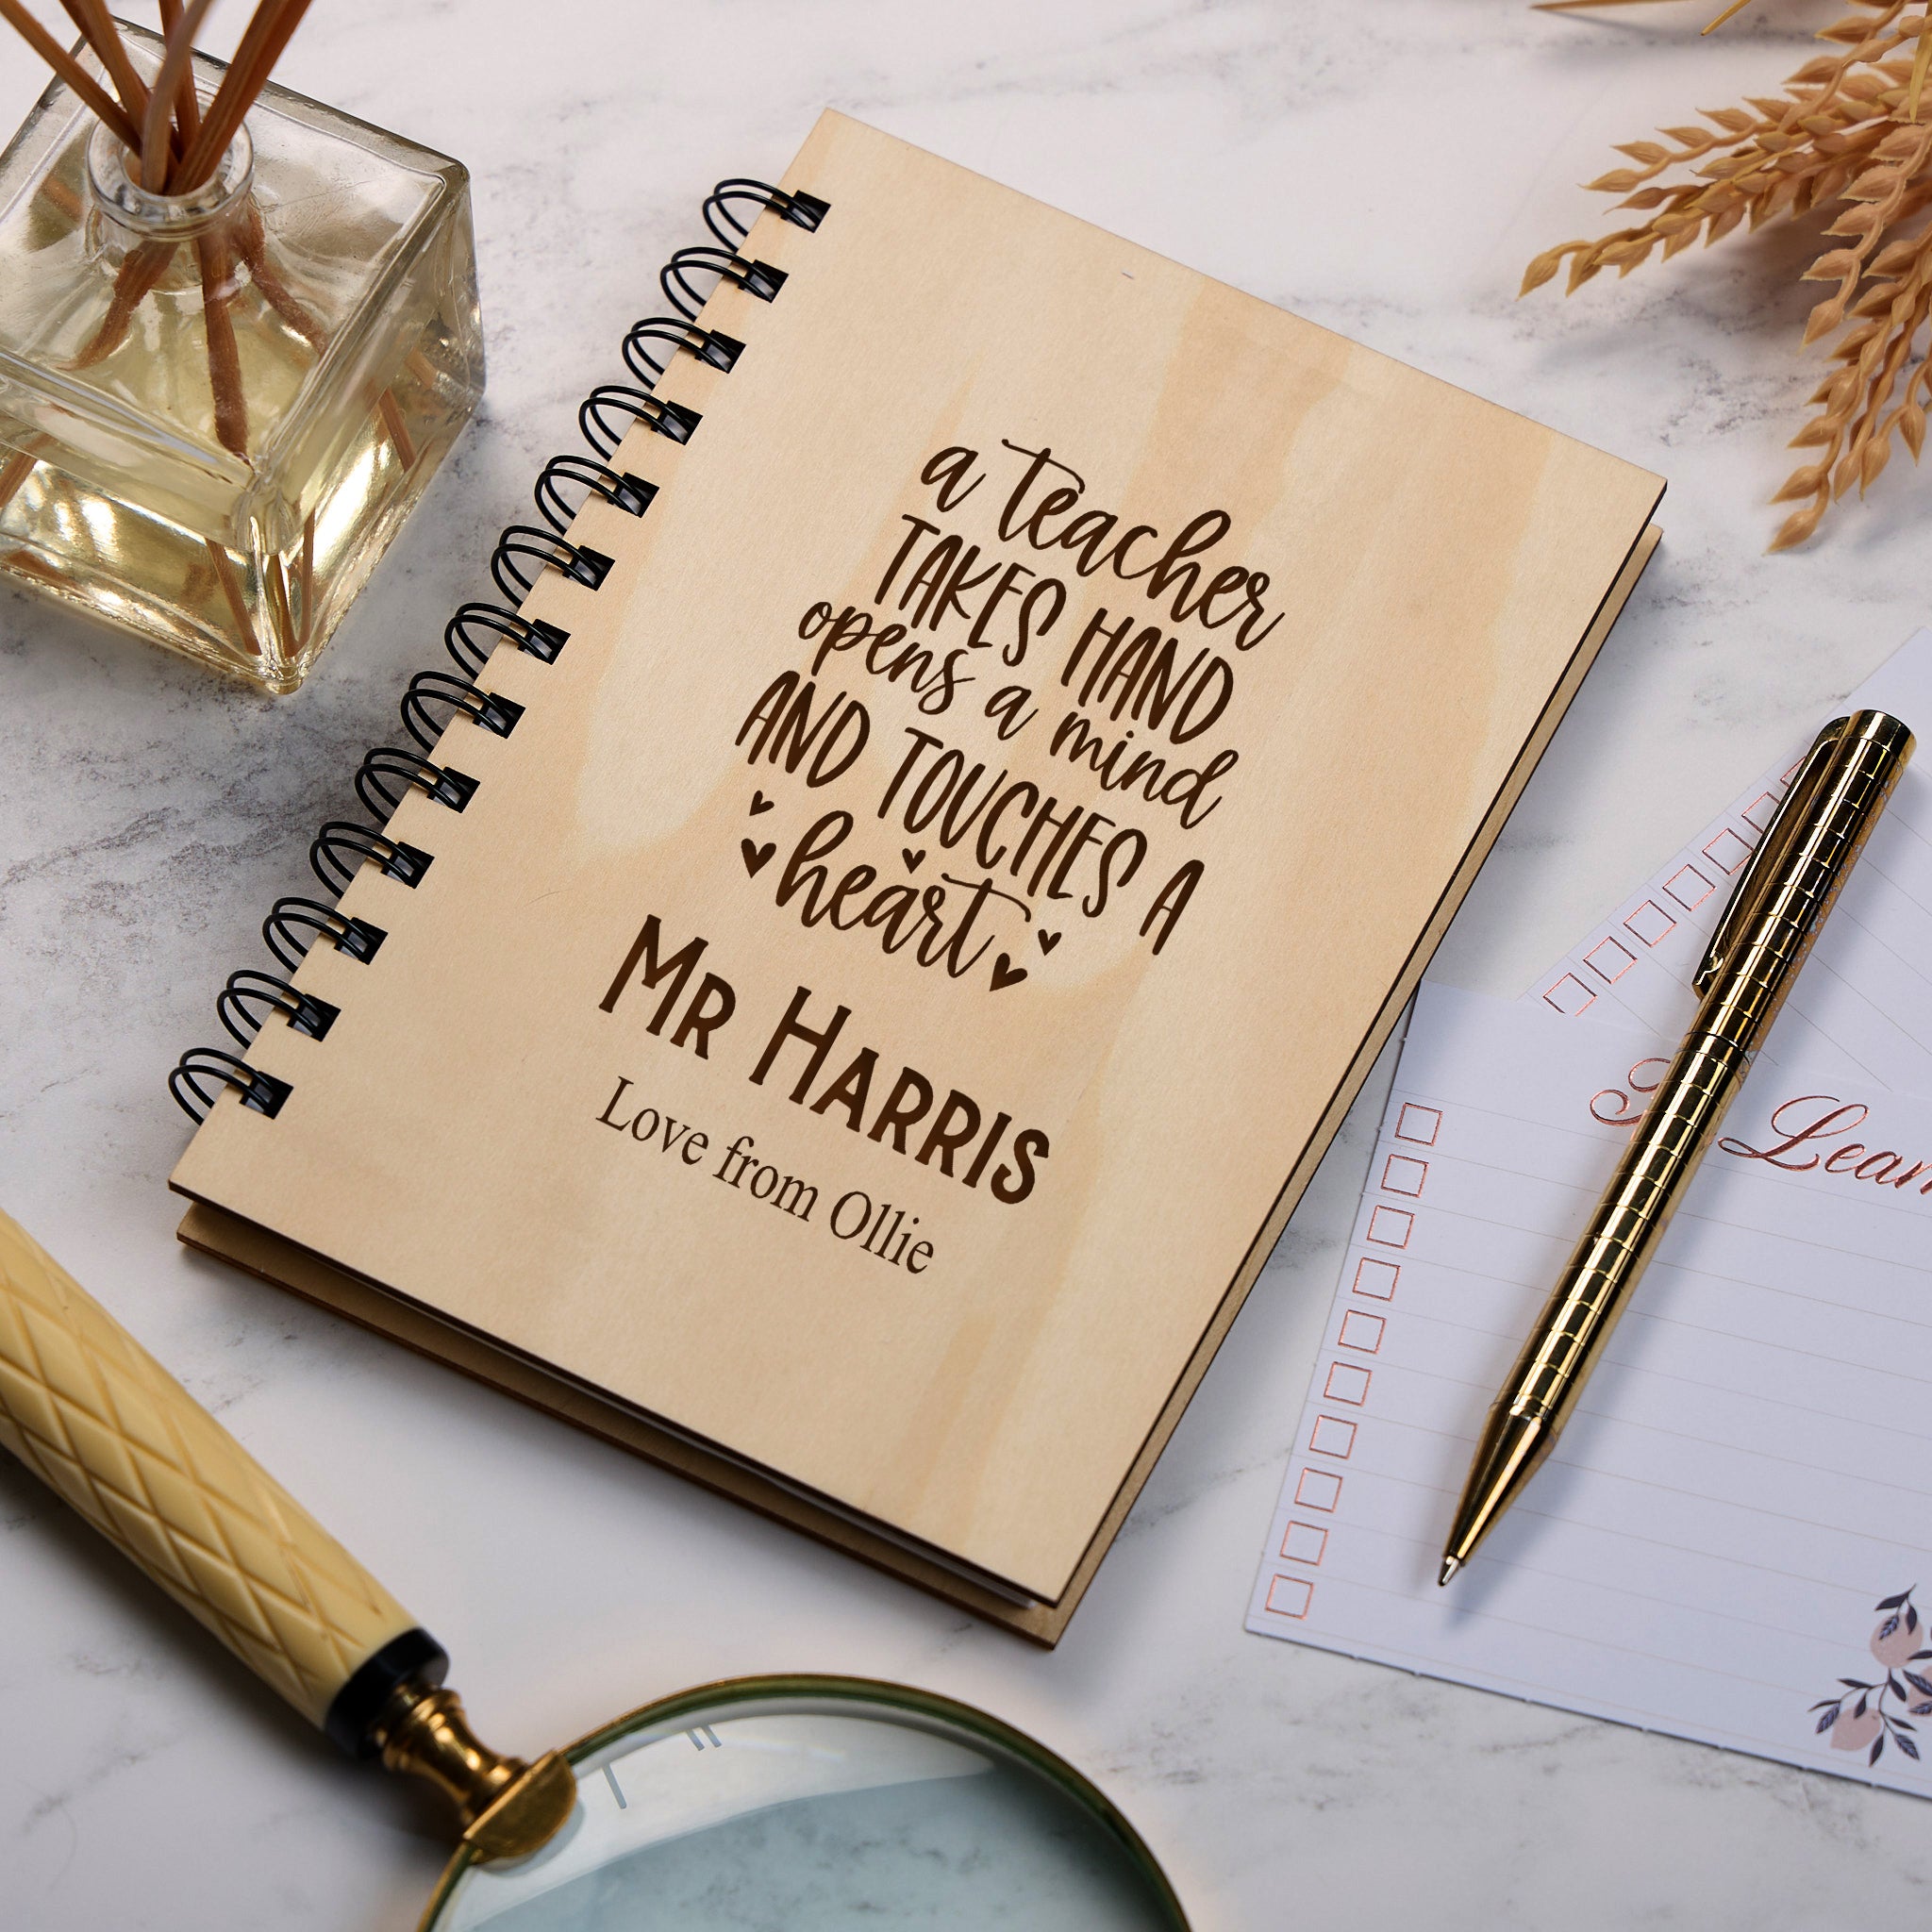 a teacher
TAKES HAND
opens a mind
AND TOUCHES A
heart
MR HARRIS
Love from Ollie